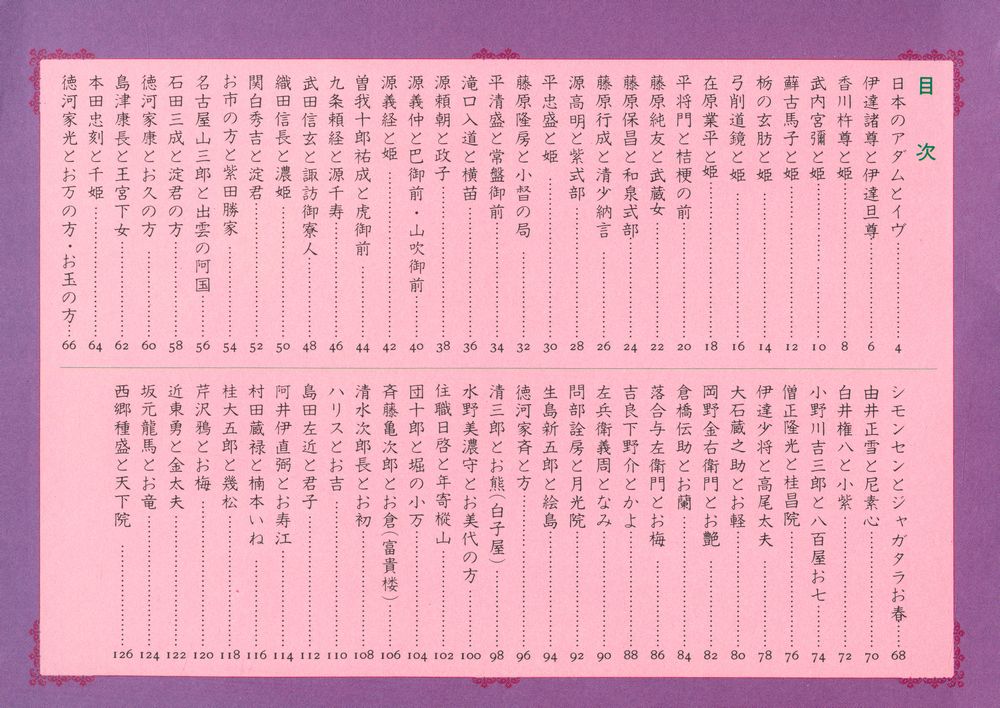 目次
日本のアダムとイヴ……4
伊達諸尊と伊達旦尊……6
香川杵尊と姫……8
武内宮彌と姫……10
蘇古馬子と姫……12
栃の玄肪と姫……14
弓削道鏡と姫……16
在原業平と姫……18
平将門と桔梗の前……20
藤原純友と武蔵女……22
藤原保昌と和泉式部……24
藤原行成と清少納言……26
源高明と紫式部……28
平忠盛と姫……30
藤原隆房と小督の局……32
平清盛と常盤御前……34
滝口入道と横苗……36
源頼朝と政子……38
源義仲と巴御前・山吹御前……40
源義経と姫……42
曽我十郎祐成と虎御前……44
九条頼経と源千寿……46
武田信玄と諏訪御寮人……48
織田信長と濃姫……50
関白秀吉と淀君……52
お市の方と紫田勝家……54
名古屋山三郎と出雲の阿国……56
石田三成と淀君の方……58
徳河家康とお久の方……60
島津康長と王宮下女……62
本田忠刻と千姫……64
徳河家光とお万の方・お玉の方……66
シモンセンとジャガタラお春……68
由井正雪と尼素心……70
白井権八と小紫……72
小野川吉三郎と八百屋お七……74
僧正隆光と桂昌院……76
伊達少将と高尾太夫……78
大石蔵之助とお軽……80
岡野金右衛門とお艶……82
倉橋伝助とお蘭……84
落合与左衛門とお梅……86
吉良下野介とかよ……88
左兵衛義周となみ……90
問部詮房と月光院……92
生島新五郎と絵島……94
徳河家斉と方……96
清三郎とお熊(白子屋)……98
水野美濃守とお美代の方……100
住職日啓と年寄樅山……102
団十郎と堀の小万……104
斉藤亀次郎とお倉(富貴楼)……106
清水次郎長とお初……108
ハリスとお吉……110
島田左近と君子……112
阿井伊直弼とお寿江……114
村田蔵禄と楠本いね……116
桂大五郎と幾松……118
芹沢鴉とお梅……120
近東勇と金太夫……122
坂元龍馬とお竜……124
西郷種盛と天下院……126